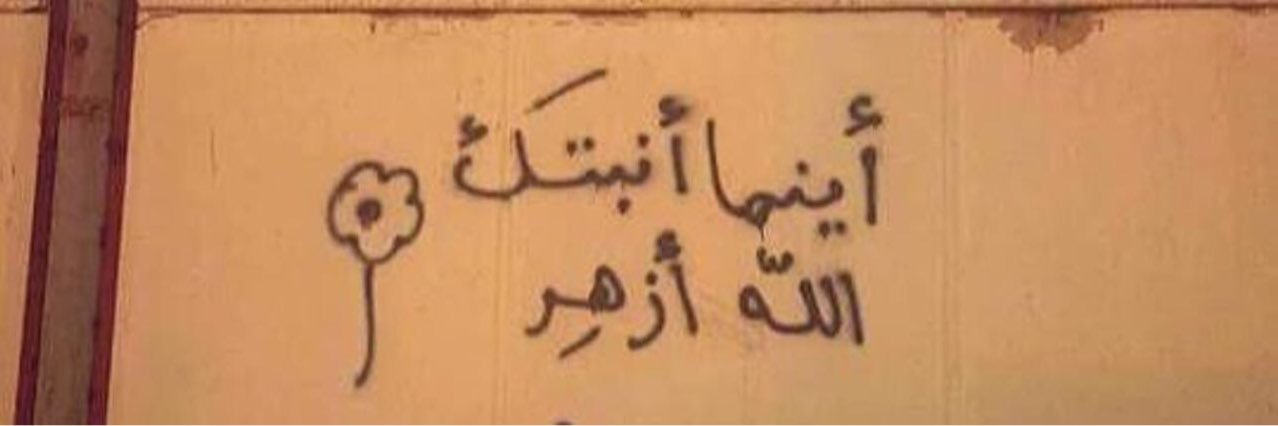 أينما أنبتكَ
اللّه أزهِر